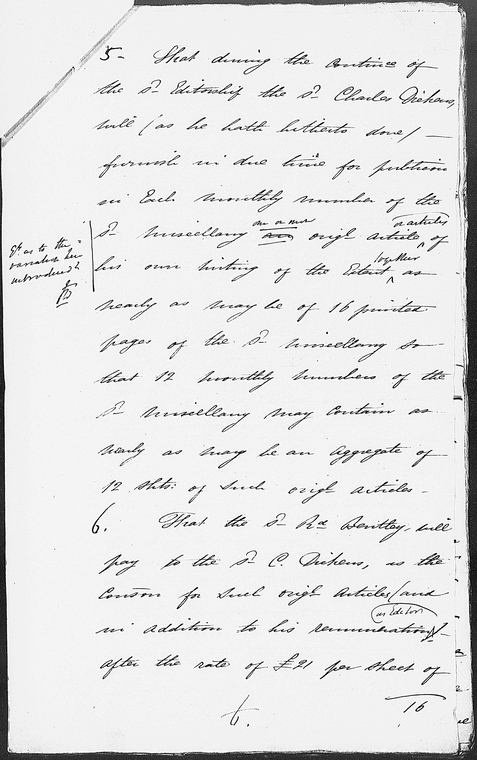 5- That during the Contince of
the sd Editorship the sd Charles Dickens,
will (as he hath hitherto done) —
furnish in due time for publicon
in Each monthly number of the
sd miscellany one or more origl article or articles of
his own writing of the Extent together as
nearly as may be of 16 printed
pages of the sd miscellany so
that 12 monthly numbers of the
sd miscellany may Contain as
nearly as may be an Aggregate of
12 shts: of such origl articles -
as to the
variation here
introduced
6. That the sd Rd Bentley, will
pay to the sd C. Dickens, as the
Conson for such origl Articles (and
in addition to his remuneration as Editor) -
after the rate of £21 per sheet of
16
6.